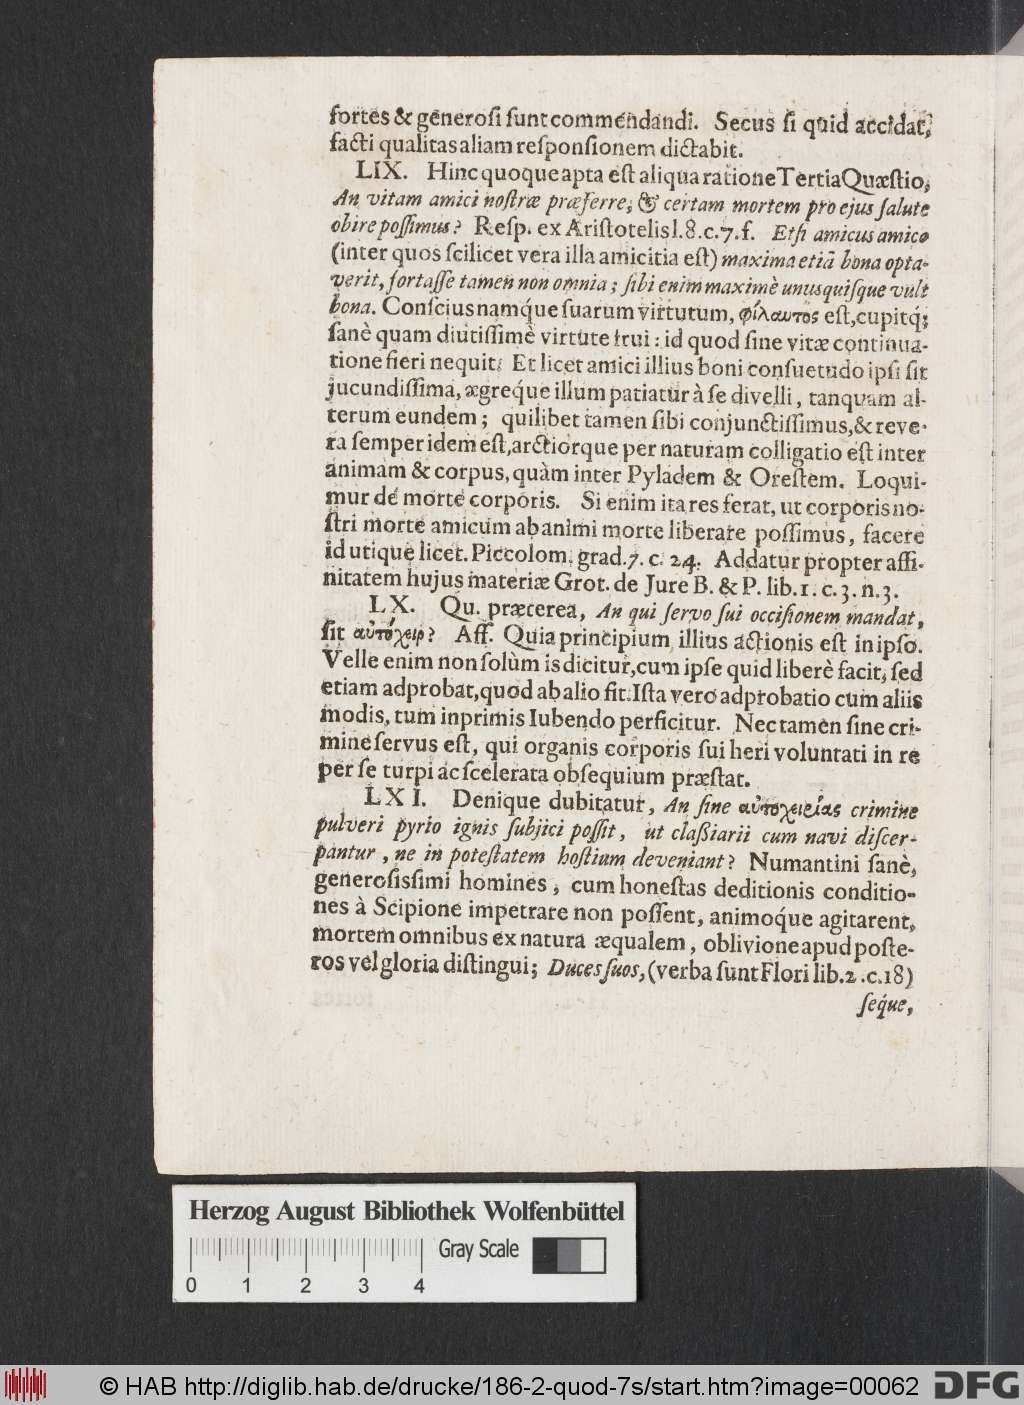 fortes & generoſi ſunt commendandi. Secus ſi quid accidat,
facti qualitas aliam reſponſionem dictabit.
LIX. Hinc quoque apta eſt aliqua ratione Tertia Quæſtio,
An vitam amici noſtræ præferre, & certam mortem pro ejus ſalute
obire poſſimus? Reſp. ex Ariſtotelis l. 8. c. 7. f. Etſi amicus amico
(inter quos ſcilicet vera illa amicitia eſt) maxima etiã bona opta-
verit, fortaſſe tamen non omnia; ſibi enim maximè unusquiſque vult
bona. Conſcius namq́ue ſuarum virtutum, φίλαυτος eſt, cupitq́;
ſanè quam diutiſſimè virtute frui: id quod ſine vitæ continua-
tione fieri nequit. Et licet amici illius boni conſuetudo ipſi ſit
jucundiſſima, ægreq́ue illum patiatur à ſe divelli, tanquam al-
terum eundem; quilibet tamen ſibi conjunctiſſimus, & reve-
ra ſemper idem eſt, arctiorque per naturam colligatio eſt inter
animam & corpus, quàm inter Pyladem & Oreſtem. Loqui-
mur de morte corporis. Si enim ita res ferat, ut corporis no-
ſtri morte amicum ab animi morte liberare poſſimus, facere
id utique licet. Piccolom. grad. 7. c. 24. Addatur propter affi-
nitatem hujus materiæ Grot. de Jure B. & P. lib. 1. c. 3. n. 3.
LX. Qu. prætcrea, An qui ſervo ſui occiſionem mandat,
ſit αὐτόχειρ? Aff. Quia principium illius actionis eſt in ipſo.
Velle enim non ſolùm is dicitur, cum ipſe quid liberè facit, ſed
etiam adprobat, quod ab alio fit. Iſta vero adprobatio cum aliis
modis, tum inprimis Iubendo perficitur. Nec tamen ſine cri-
mine ſervus eſt, qui organis corporis ſui heri voluntati in re
per ſe turpi ac ſcelerata obſequium præſtat.
LXI. Denique dubitatur, An ſine αὐτοχειρίας crimine
pulveri pyrio ignis ſubjici poſſit, ut claßiarii cum navi diſcer-
pantur, ne in poteſtatem hoſtium deveniant? Numantini ſanè,
generoſissimi homines, cum honeſtas deditionis conditio-
nes à Scipione impetrare non poſſent, animoq́ue agitarent,
mortem omnibus ex natura æqualem, oblivione apud poſte-
ros vel gloria diſtingui; Duces ſuos, (verba ſunt Flori lib. 2. c. 18)
ſeq́ue,
Herzog August Bibliothek Wolfenbüttel
Gray Scale
0 1 2 3 4
© HAB http://diglib.hab.de/drucke/186-2-quod-7s/start.htm?image=00062
DFG